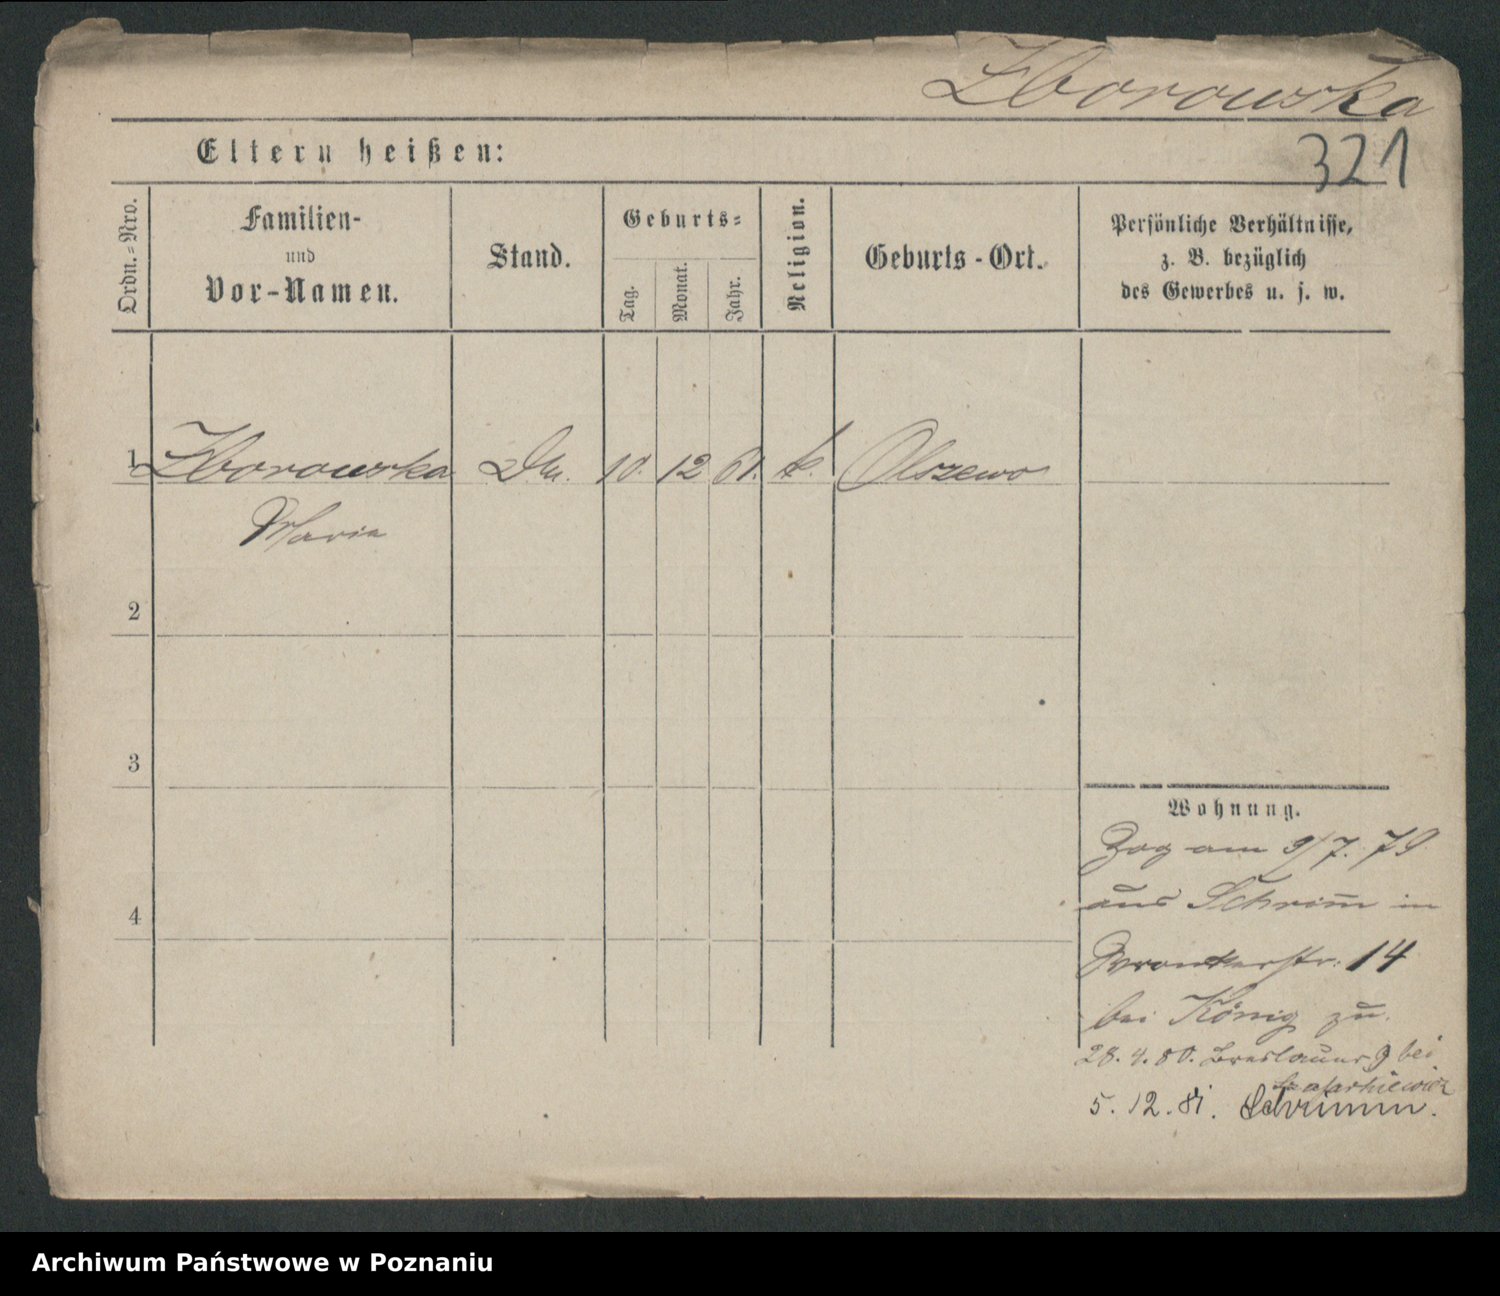 Zborowska
321
Eltern heißen:
Ordn.-Nro.
Familien-
und
Vor-Namen.
Stand.
Geburts-
Tag.
Monat.
Jahr.
Religion.
Geburts-Ort.
Persönliche Verhältnisse,
z. B. bezüglich
des Gewerbes u. s. w.
1 Zborowska 10. 12 61. k. Olszewo
Maria
2
3
4
Wohnung.
Zog am 9/7. 79
aus Schrim̄ in
Wronkerstr. 14
bei König zu.
28. 4. 80. Breslauer 9 bei
5. 12. 81. Schrimm.
Archiwum Państwowe w Poznaniu